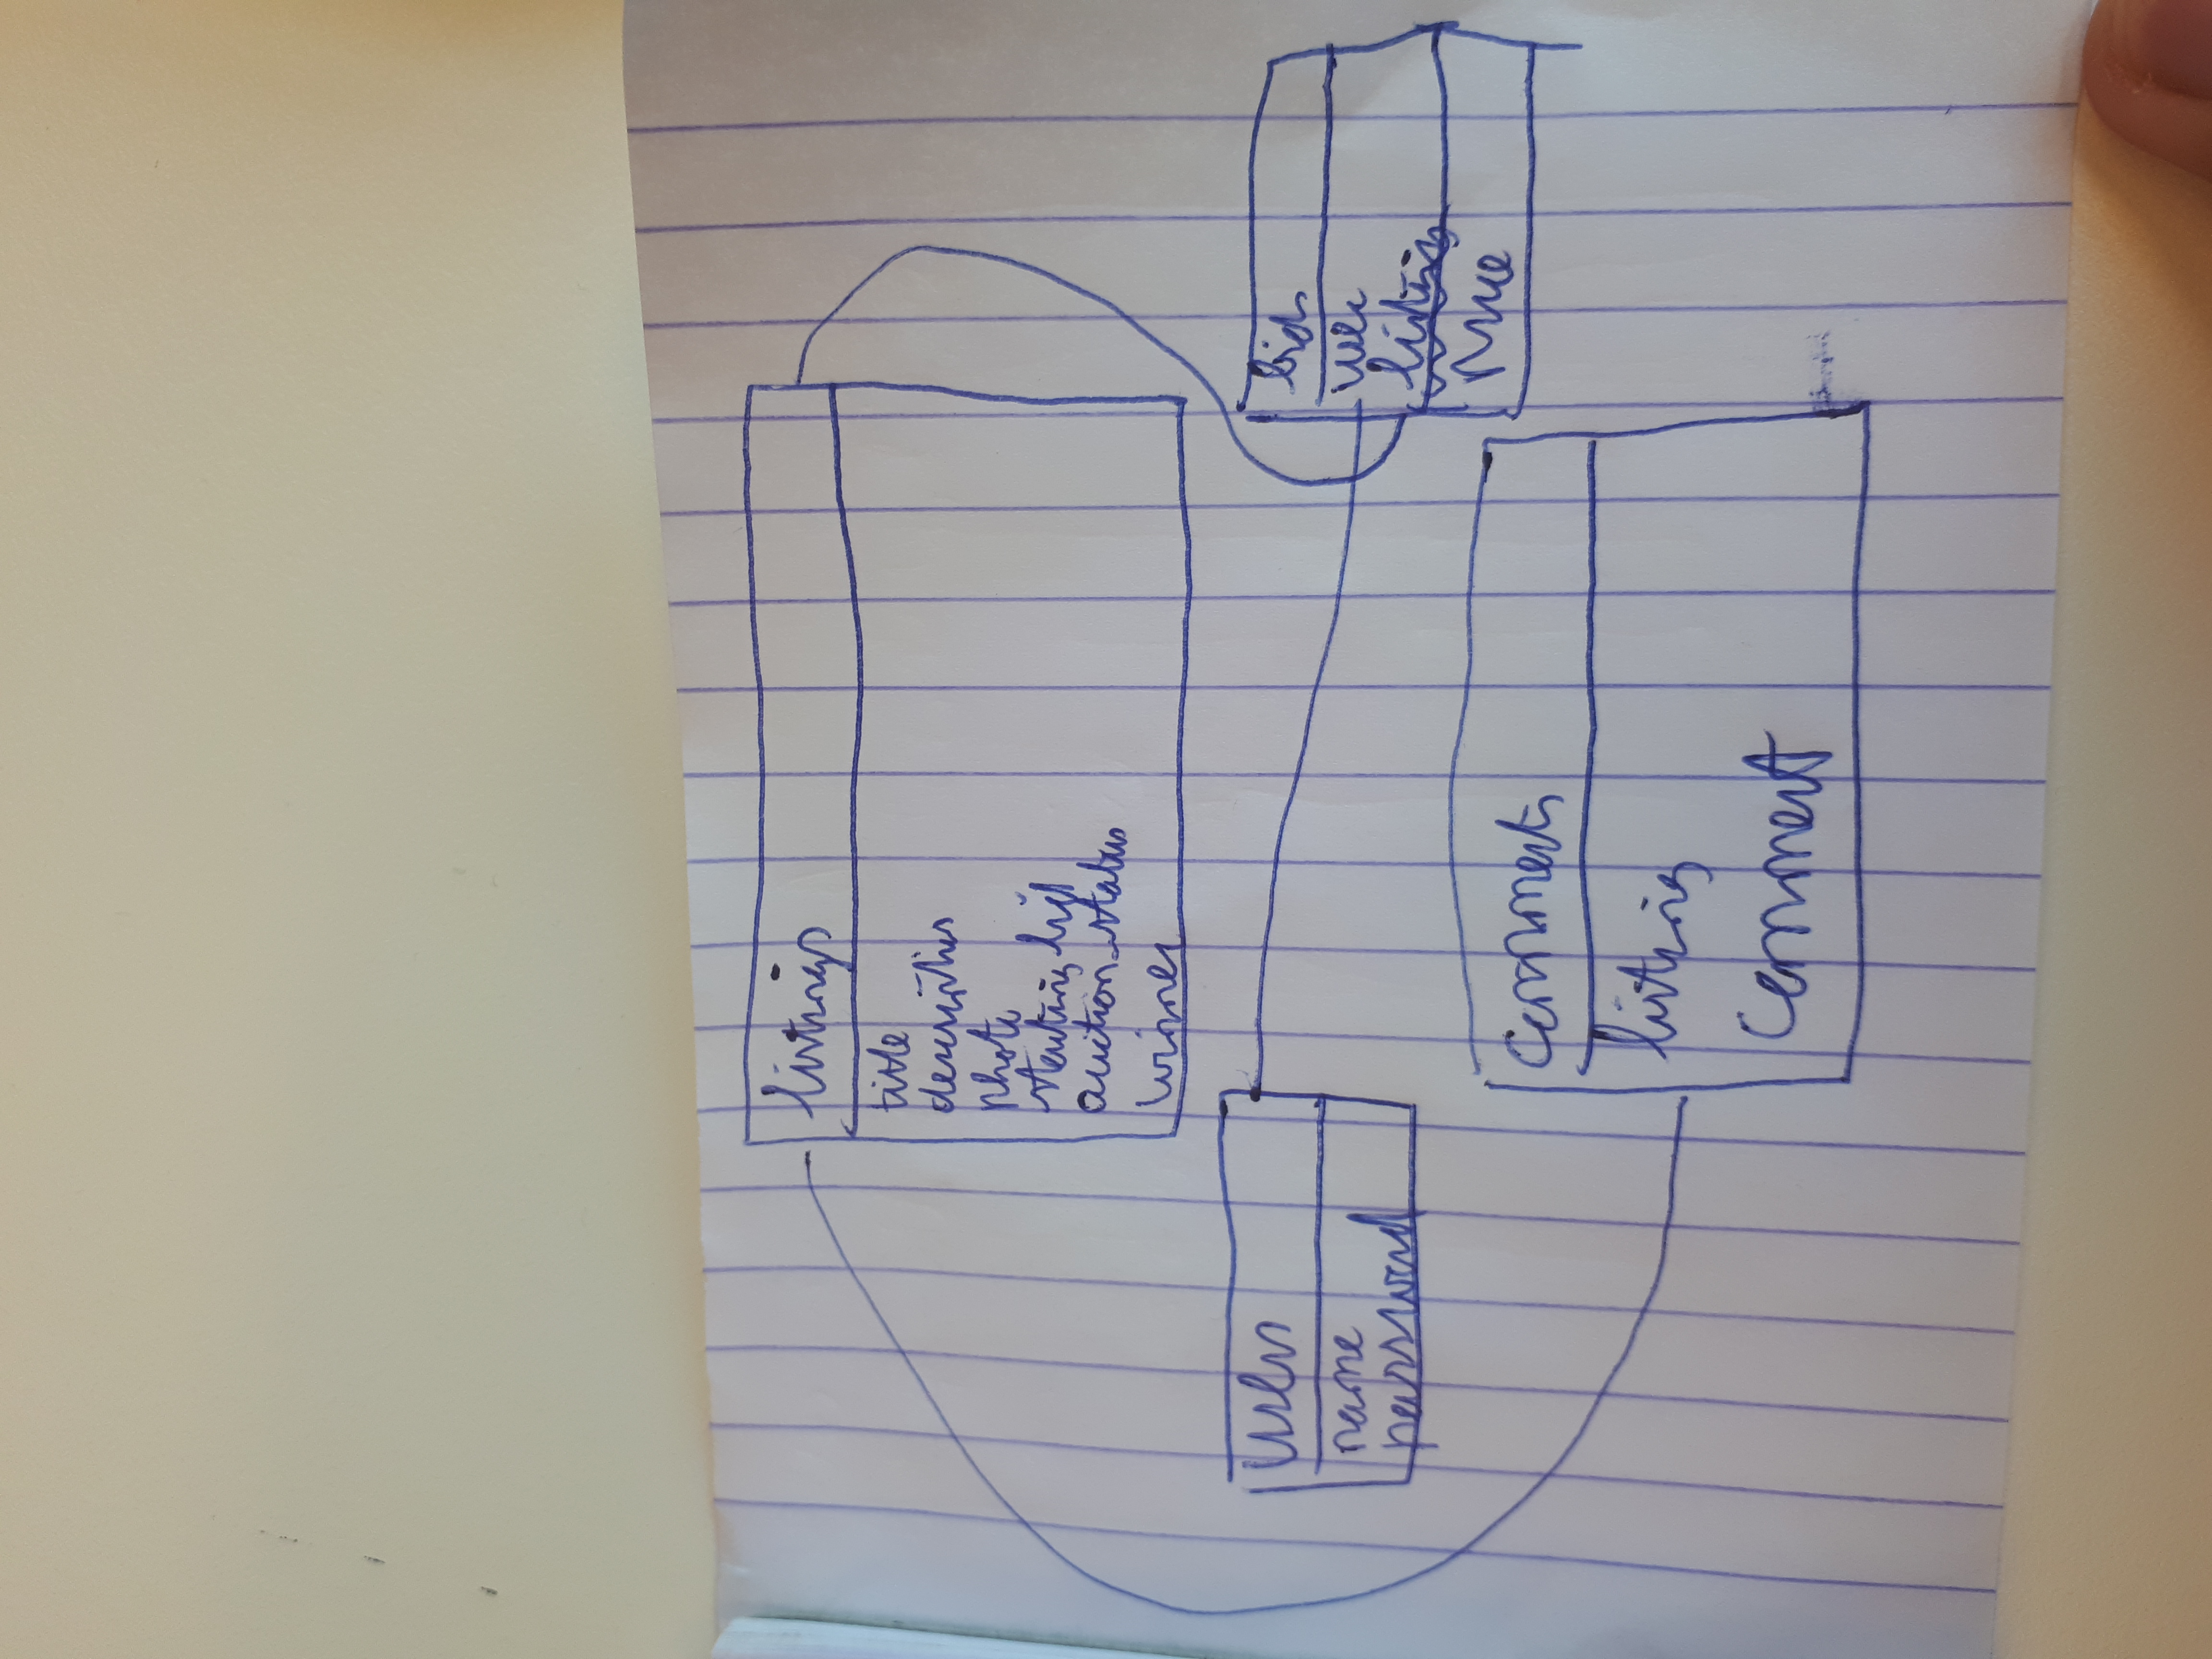 listings
title
description
photo
starting bid
auction_status
winner
users
name
password
bids
user
listing
price
comments
listing
comment